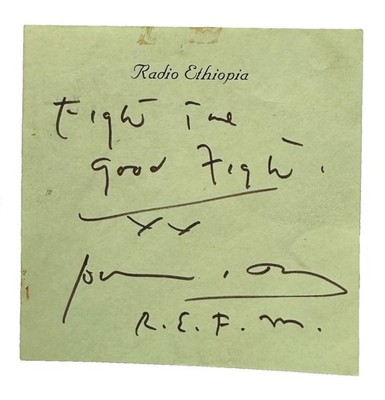 Radio Ethiopia
Fight The
Good Fight.
xx
R.E.F.M.